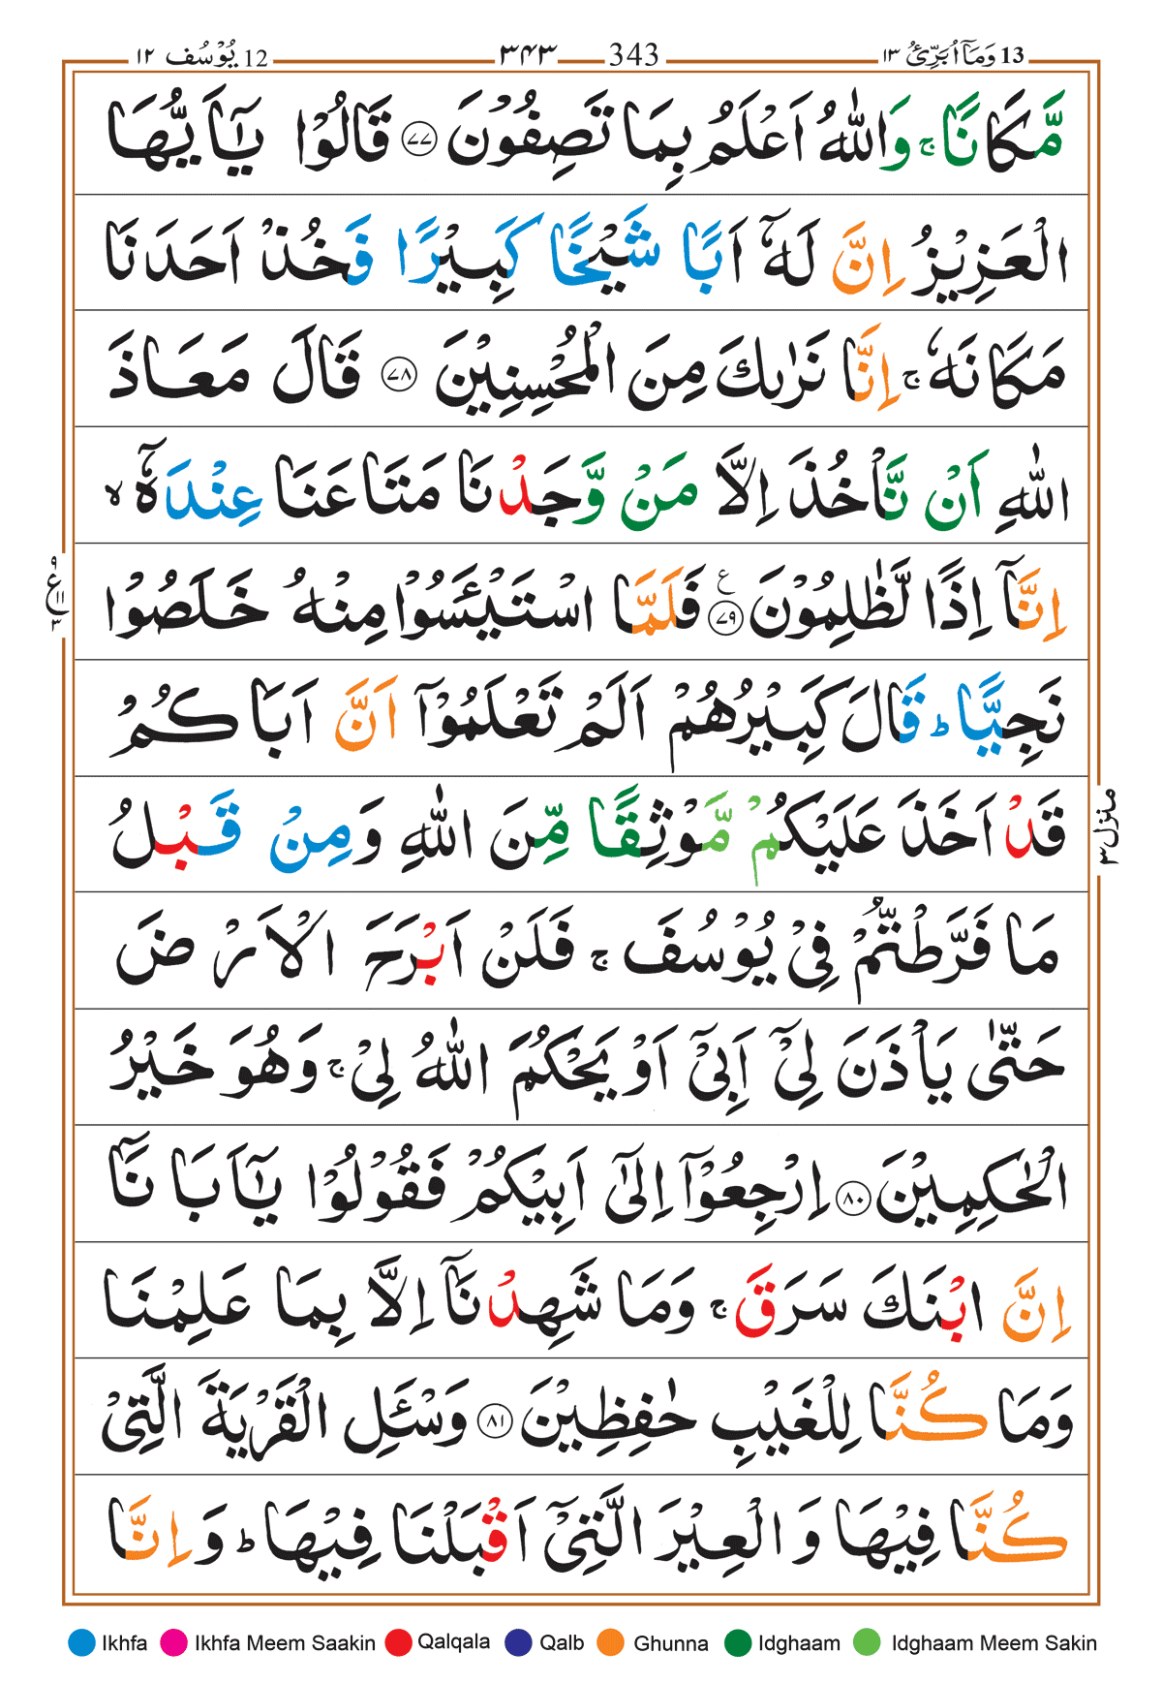 13 وَمَآ اُبَرِّئُ ١٣ 343 ٣٤٣ 12 يُوْسُف ١٢
مَّكَانًا ۚ وَاللّٰهُ اَعْلَمُ بِمَا تَصِفُوْنَ ﴿٧٧﴾ قَالُوْا يٰٓاَيُّهَا
الْعَزِيْزُ اِنَّ لَهٗٓ اَبًا شَيْخًا كَبِيْرًا فَخُذْ اَحَدَنَا
مَكَانَهٗ ۚ اِنَّا نَرٰىكَ مِنَ الْمُحْسِنِيْنَ ﴿٧٨﴾ قَالَ مَعَاذَ
اللّٰهِ اَنْ نَّاْخُذَ اِلَّا مَنْ وَّجَدْنَا مَتَاعَنَا عِنْدَهٗٓ ۙ
اِنَّآ اِذًا لَّظٰلِمُوْنَ ﴿٧٩﴾ ع فَلَمَّا اسْتَيْـَٔسُوْا مِنْهُ خَلَصُوْا
نَجِيًّا ؕ قَالَ كَبِيْرُهُمْ اَلَمْ تَعْلَمُوْٓا اَنَّ اَبَاكُمْ
قَدْ اَخَذَ عَلَيْكُمْ مَّوْثِقًا مِّنَ اللّٰهِ وَمِنْ قَبْلُ
مَا فَرَّطْتُّمْ فِيْ يُوْسُفَ ۚ فَلَنْ اَبْرَحَ الْاَرْضَ
حَتّٰى يَاْذَنَ لِيْٓ اَبِيْٓ اَوْ يَحْكُمَ اللّٰهُ لِيْ ۚ وَهُوَ خَيْرُ
الْحٰكِمِيْنَ ﴿٨٠﴾ اِرْجِعُوْٓا اِلٰٓى اَبِيْكُمْ فَقُوْلُوْا يٰٓاَبَانَآ
اِنَّ ابْنَكَ سَرَقَ ۚ وَمَا شَهِدْنَآ اِلَّا بِمَا عَلِمْنَا
وَمَا كُنَّا لِلْغَيْبِ حٰفِظِيْنَ ﴿٨١﴾ وَسْـَٔلِ الْقَرْيَةَ الَّتِيْ
كُنَّا فِيْهَا وَالْعِيْرَ الَّتِيْٓ اَقْبَلْنَا فِيْهَا ؕ وَاِنَّا
منزل ٣
Ikhfa Ikhfa Meem Saakin Qalqala Qalb Ghunna Idghaam Idghaam Meem Sakin